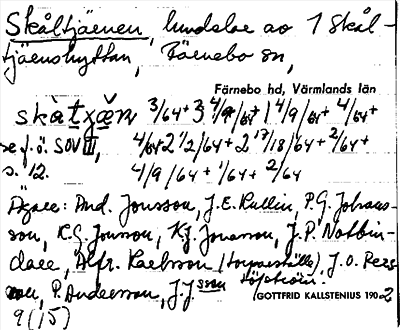 Skåltjäenen, lundsloe av 1 Skål-
tjäenshyttan, Fäenebo sn,
Färnebo hd, Värmlands län
skàtxǟn 3/64+3 4/9/64+1 4/9/64+4/64+
se f.ö. SOV III, 4/64+2 1/2/64+2 17/18/64+2/64+
s. 12. 4/9/64+1/64+2/64
Ägare: And. Jonsson, J.E. Kullin, P.G. Johans-
son, K.G. Jonsson, K.J. Jonasson, J.P. Notbin-
dare, Alfr. Karlsson (torparställe), J.O. Pers
son, P. Andersson, J.Jsson
GOTTFRID KALLSTENIUS 1902
9(15)